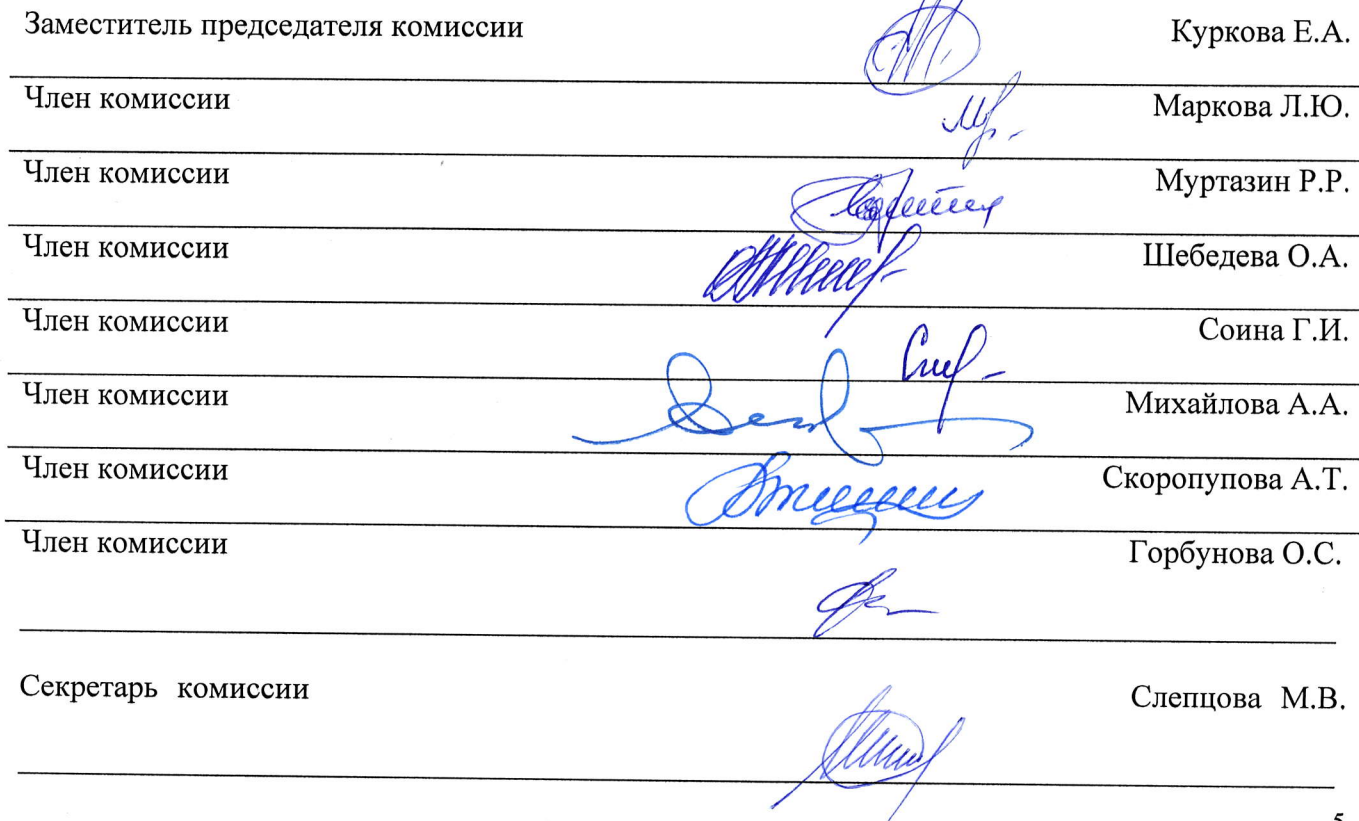 Заместитель председателя комиссии Куркова Е.А.
Член комиссии Маркова Л.Ю.
Член комиссии Муртазин Р.Р.
Член комиссии Шебедева О.А.
Член комиссии Соина Г.И.
Член комиссии Михайлова А.А.
Член комиссии Скоропупова А.Т.
Член комиссии Горбунова О.С.
Секретарь комиссии Слепцова М.В.
5